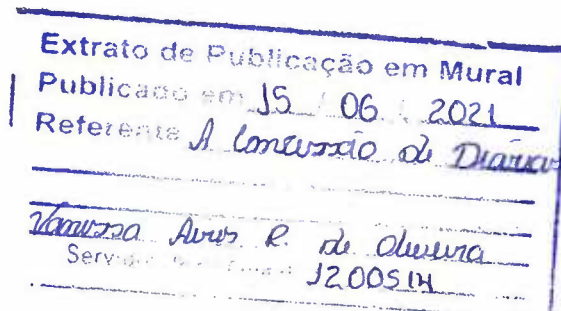 Extrato de Publicação em Mural
Publicado em 15 / 06 / 2021
Referente A Concessão de Diárias
Vanessa Aires R. de Oliveira
Servidor